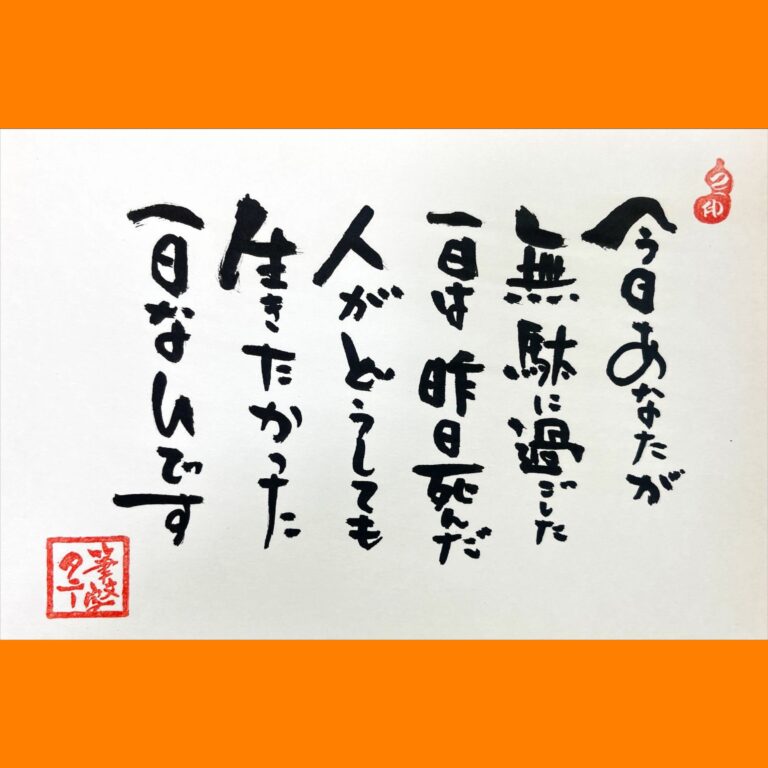 今日あなたが
無駄に過ごした
一日は昨日死んだ
人がどうしても
生きたかった
一日なんです